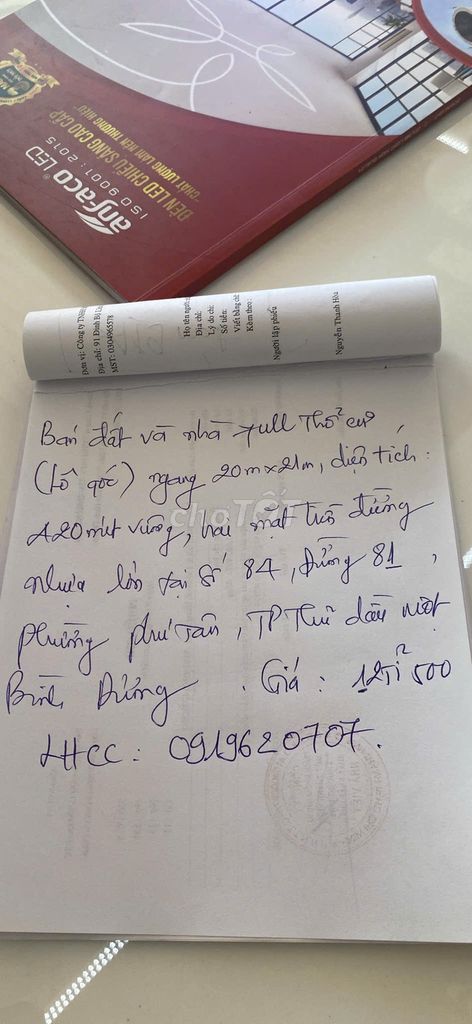 anfaco LED
ISO 9001 : 2015
ĐÈN LED CHIẾU SÁNG CAO CẤP
"CHẤT LƯỢNG LÀM NÊN THƯƠNG HIỆU"
Đơn vị: Công ty TNHH
Địa chỉ: 91 Đinh Bộ
MST: 0304965578
Họ tên người
Địa chỉ:
Lý do chi:
Số tiền:
Viết bằng chữ
Kèm theo:
Người lập phiếu
Nguyễn Thanh Hòa
Bán đất và nhà full Thổ cư
(Lô góc) ngang 20m x 21m, diện tích:
420 mét vuông, hai mặt tiền đường
nhựa lớn tại số 84, Đường 81,
phường phú Tân, TP Thủ dầu một
Bình Dương. Giá: 12Tỉ 500
LHCC: 0919620707.
choTỐT